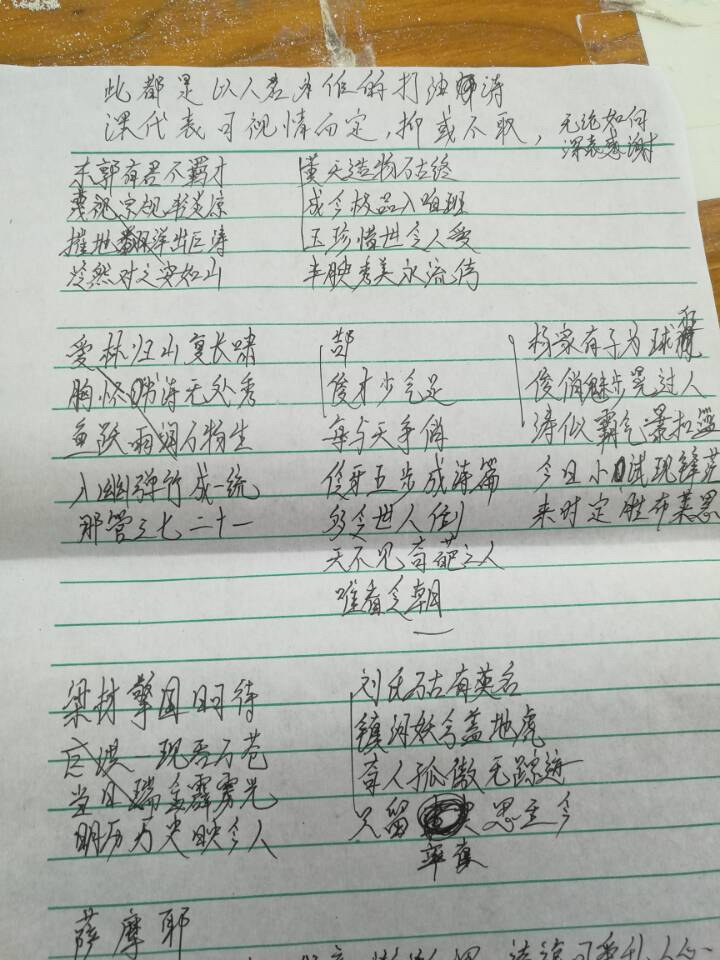 此都是以人名为作的打油诗
课代表可视情而定,抑或不取,无论如何
深表感谢
东郭有君不羁才
蔑视宗规李炎凉
摧地翻洋出巨涛
冷然对之安如山
黄天造物万古终
成今极品入咱班
玉珍惜世令人爱
丰腴秀美永流传
爱林归山夏长啸
胸怀涛无处秀
鱼跃雨润万物生
入幽弹竹成一统
那管三七二十一
郜
俊才少气足
每与天争
五步成诗篇
够令世人倒
天不见奇葩之人
唯看今朝
杨家有子为球
俊俏魅步晃过人
涛似霸气暴扣篮
今日小试现锋芒
来时定胜布莱恩
梁材擎国日可待
一现吞万苍
当日瑞金霹雳光
明历万史映今人
刘氏万古有英名
镇河妖兮盖地虎
奇人孤傲无踪迹
只留思至今
率真
萨摩耶